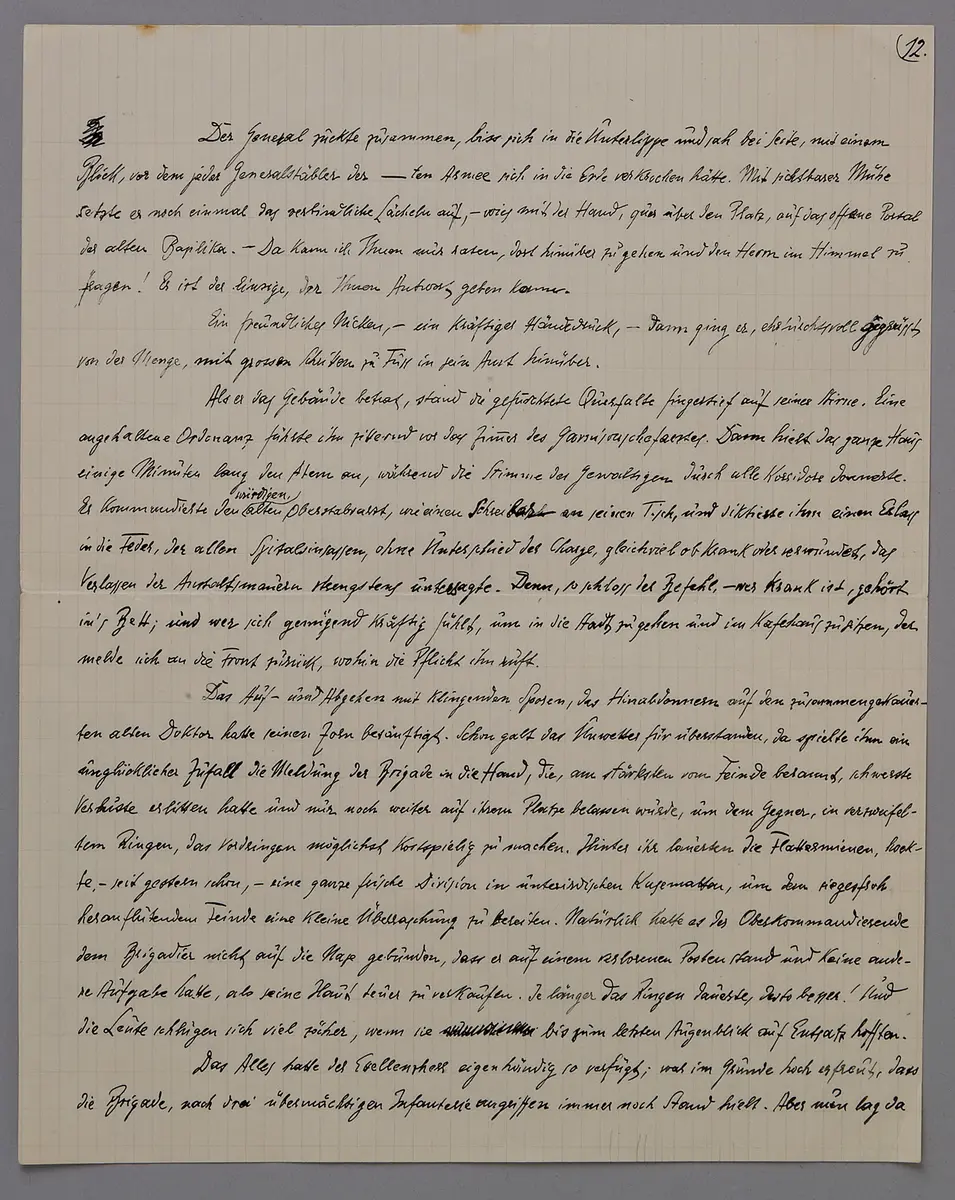 12.
Der General zuckte zusammen, biss sich in die Unterlippe und sah bei Seite, mit einem
Blick, vor dem jeder Generalstäbler der — ten Armee sich in die Erde verkrochen hätte. Mit sichtbarer Mühe
setzte er noch einmal das verbindliche Lächeln auf, – wies mit der Hand, quer über den Platz, auf das offene Portal
der alten Basilika. – Da kann ich Ihnen nur raten, dort hinüber zu gehen und den Herrn im Himmel zu
fragen! Er ist der Einzige, der Ihnen Antwort geben kann.
Ein freundliches Nicken, – ein kräftiger Händedruck, – dann ging er, ehrfurchtsvoll gegrüsst
von der Menge, mit grossen Schritten zu Fuss in sein Amt hinüber.
Als er das Gebäude betrat, stand die gefürchtete Querfalte fingertief auf seiner Stirne. Eine
angehaltene Ordonanz führte ihn zitternd vor das Zimmer des Garnisonschefarztes. Dann hielt das ganze Haus
einige Minuten lang den Atem an, während die Stimme des Gewaltigen durch alle Korridore donnerte.
würdigen,
Er kommandierte den alten Oberstabsarzt, wie einen Schreiber an seinen Tisch, und diktierte ihm einen Erlass
in die Feder, der allen Spitalsinsassen, ohne Unterschied der Charge, gleichviel ob krank oder verwundet, das
Verlassen der Anstaltsmauern strengstens untersagte. Denn, so schloss der Befehl, – wer krank ist, gehört
in's Bett; und wer sich genügend kräftig fühlt, um in die Stadt zu gehen und im Kafehaus zu sitzen, der
melde sich an die Front zurück, wohin die Pflicht ihn ruft.
Das Auf- und Abgehen mit klingenden Sporen, das Hinabdonnern auf den zusammengekauer-
ten alten Doktor hatte seinen Zorn besänftigt. Schon galt das Unwetter für überstanden, da spielte ihm ein
unglücklicher Zufall die Meldung der Brigade in die Hand, die, am stärksten vom Feinde berannt, schwerste
Verluste erlitten hatte und nur noch weiter auf ihrem Platze belassen wurde, um dem Gegner, in verzweifel-
tem Ringen, das Vordringen möglichst kostspielig zu machen. Hinter ihr lauerten die Flatterminen, hock-
te, – seit gestern schon, – eine ganze frische Division in unterirdischen Kasematten, um dem siegesfroh
heraufflutendem Feinde eine kleine Überraschung zu bereiten. Natürlich hatte es der Oberkommandierende
dem Brigadier nicht auf die Nase gebunden, dass er auf einem verlorenen Posten stand und keine ande-
re Aufgabe hatte, als seine Haut teuer zu verkaufen. Je länger das Ringen dauerte, desto besser! Und
die Leute schlugen sich viel zäher, wenn sie bis zum letzten Augenblick auf Entsatz hofften.
Das Alles hatte der Exellenzherr eigenhändig so verfügt; war im Grunde hoch erfreut, dass
die Brigade, nach drei übermächtigen Infanterieangriffen immer noch Stand hielt. Aber nun lag da